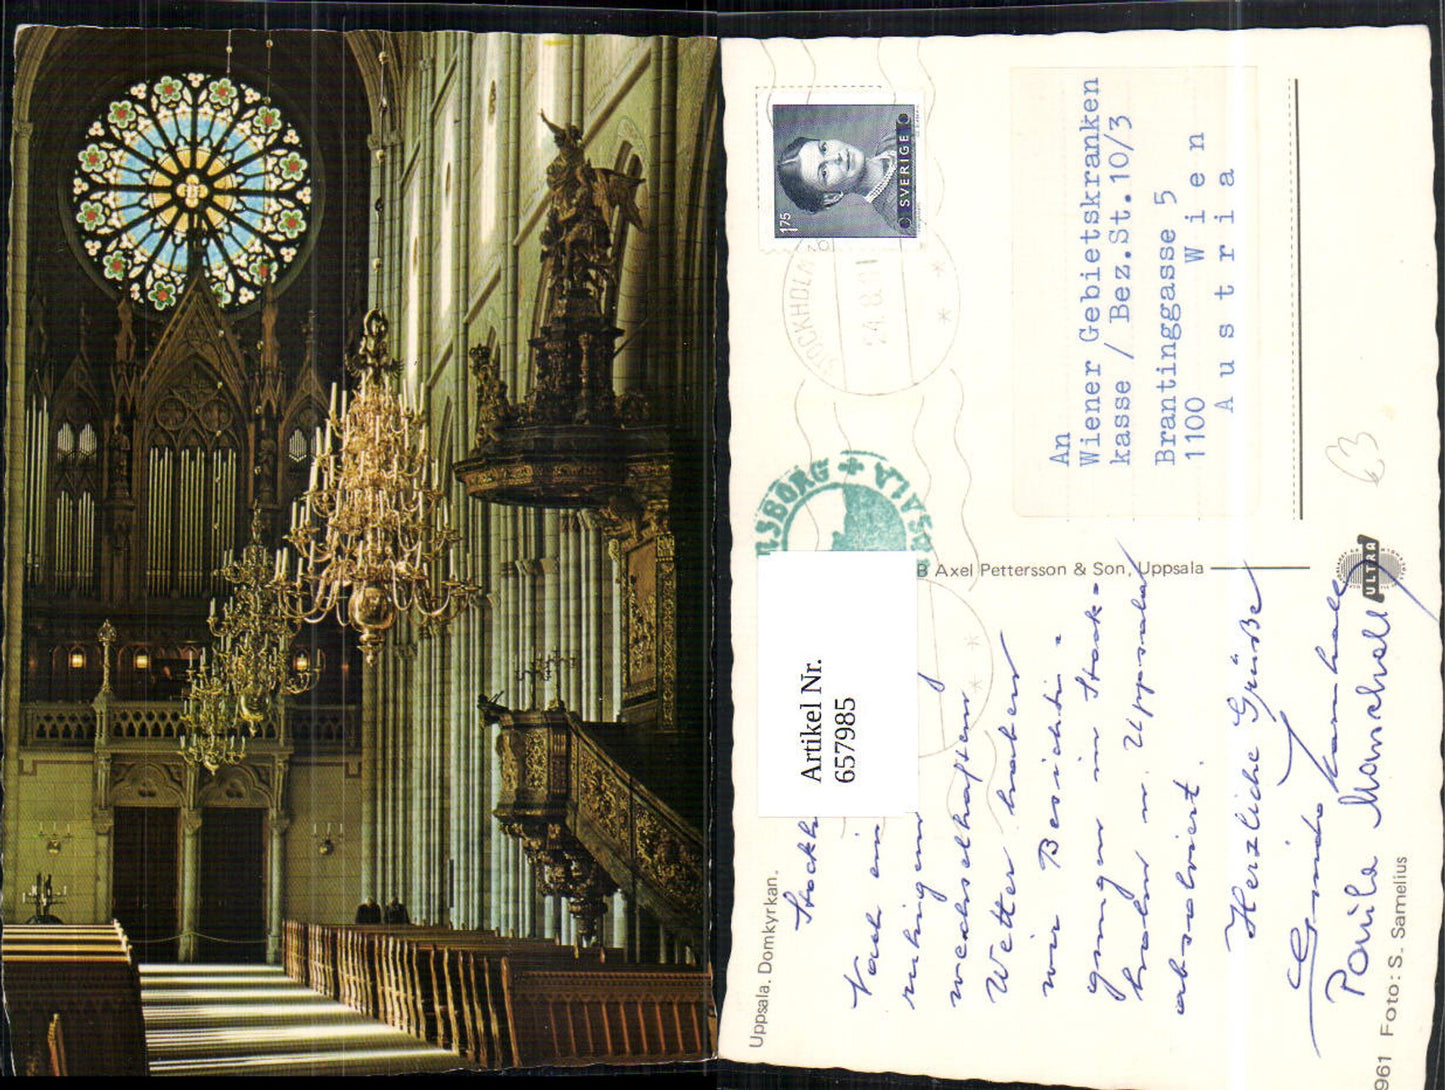 SVERIGE
175
STOCKHOLM
24.8.81
An
Wiener Gebietskranken
kasse / Bez.St.10/3
Brantinggasse 5
1100 Wien
Austria
B Axel Pettersson & Son, Uppsala
ULTRA
63
Artikel Nr.
657985
Uppsala. Domkyrkan.
Stockh
Nach ein
ruhigen
wechselhaften
Wetter haben
wir Besichti-
gungen in Stock-
holm u. Uppsala
absolviert.
Herzliche Grüße
Paula
961 Foto: S. Samelius